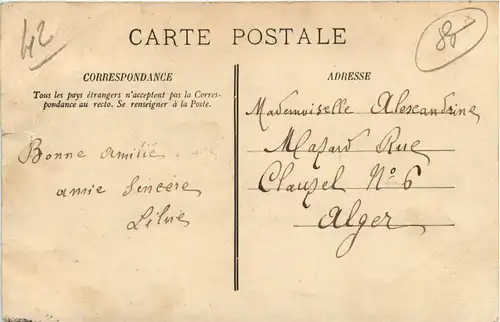 42
85
CARTE POSTALE
CORRESPONDANCE
Tous les pays étrangers n'acceptent pas la Corres-
pondance au recto. Se renseigner à la Poste.
ADRESSE
Mademoiselle Alexandrine
Masard Rue
Clauzel N° 6
Alger
Bonne Amitié
amie Sincère